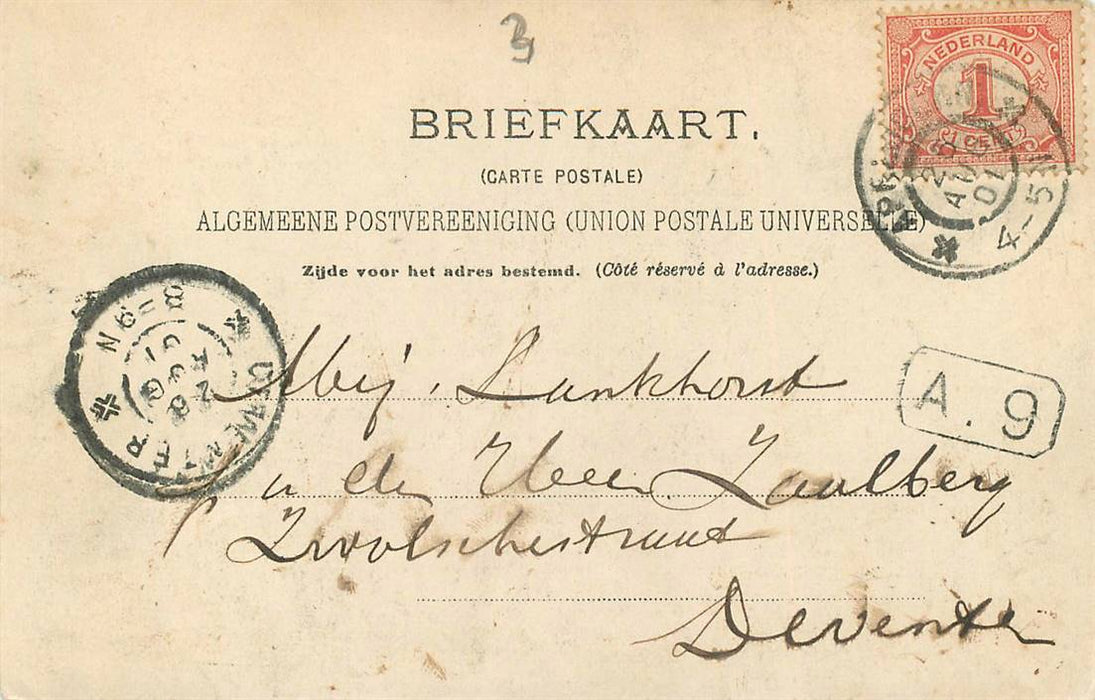 3
NEDERLAND
1
1 CENT
BRIEFKAART.
(CARTE POSTALE)
ALGEMEENE POSTVEREENIGING (UNION POSTALE UNIVERSELLE)
Zijde voor het adres bestemd. (Côté réservé à l'adresse.)
28
AUG
01
4-5N
DEVENTER
28
AUG
01
8-9N
A. 9
Mej. Lankhorst
p a den Heer Zaalberg
Zwolschestraat
Deventer